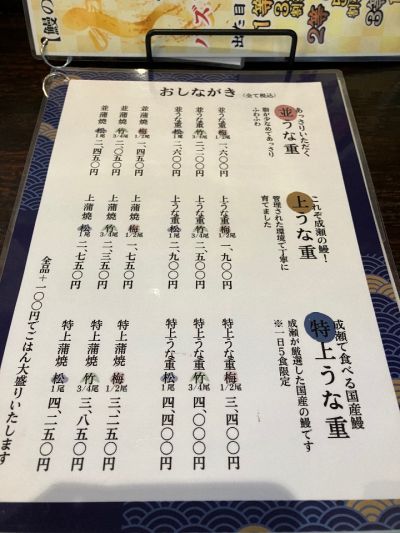 【鰻の
ズ
出た目
1等
2等
3等
おしながき (全て税込)
あっさりいただく
並うな重
脂が少なめであっさり
ふわふわ
並うな重 梅 1/2尾 一、六〇〇円
並うな重 竹 3/4尾 二、二〇〇円
並うな重 松 1尾 二、六〇〇円
並蒲焼 梅 1/2尾 一、四五〇円
並蒲焼 竹 3/4尾 二、〇五〇円
並蒲焼 松 1尾 二、四五〇円
これぞ成瀬の鰻!
上うな重
管理された環境で丁寧に
育てました
上うな重 梅 1/2尾 一、九〇〇円
上うな重 竹 3/4尾 二、五〇〇円
上うな重 松 1尾 二、九〇〇円
上蒲焼 梅 1/2尾 一、七五〇円
上蒲焼 竹 3/4尾 二、三五〇円
上蒲焼 松 1尾 二、七五〇円
成瀬で食べる国産鰻
特上うな重
成瀬が厳選した国産の鰻です
※一日5食限定
特上うな重 梅 1/2尾 三、四〇〇円
特上うな重 竹 3/4尾 四、〇〇〇円
特上うな重 松 1尾 四、四〇〇円
特上蒲焼 梅 1/2尾 三、二五〇円
特上蒲焼 竹 3/4尾 三、八五〇円
特上蒲焼 松 1尾 四、二五〇円
全品+一〇〇円でごはん大盛りいたします